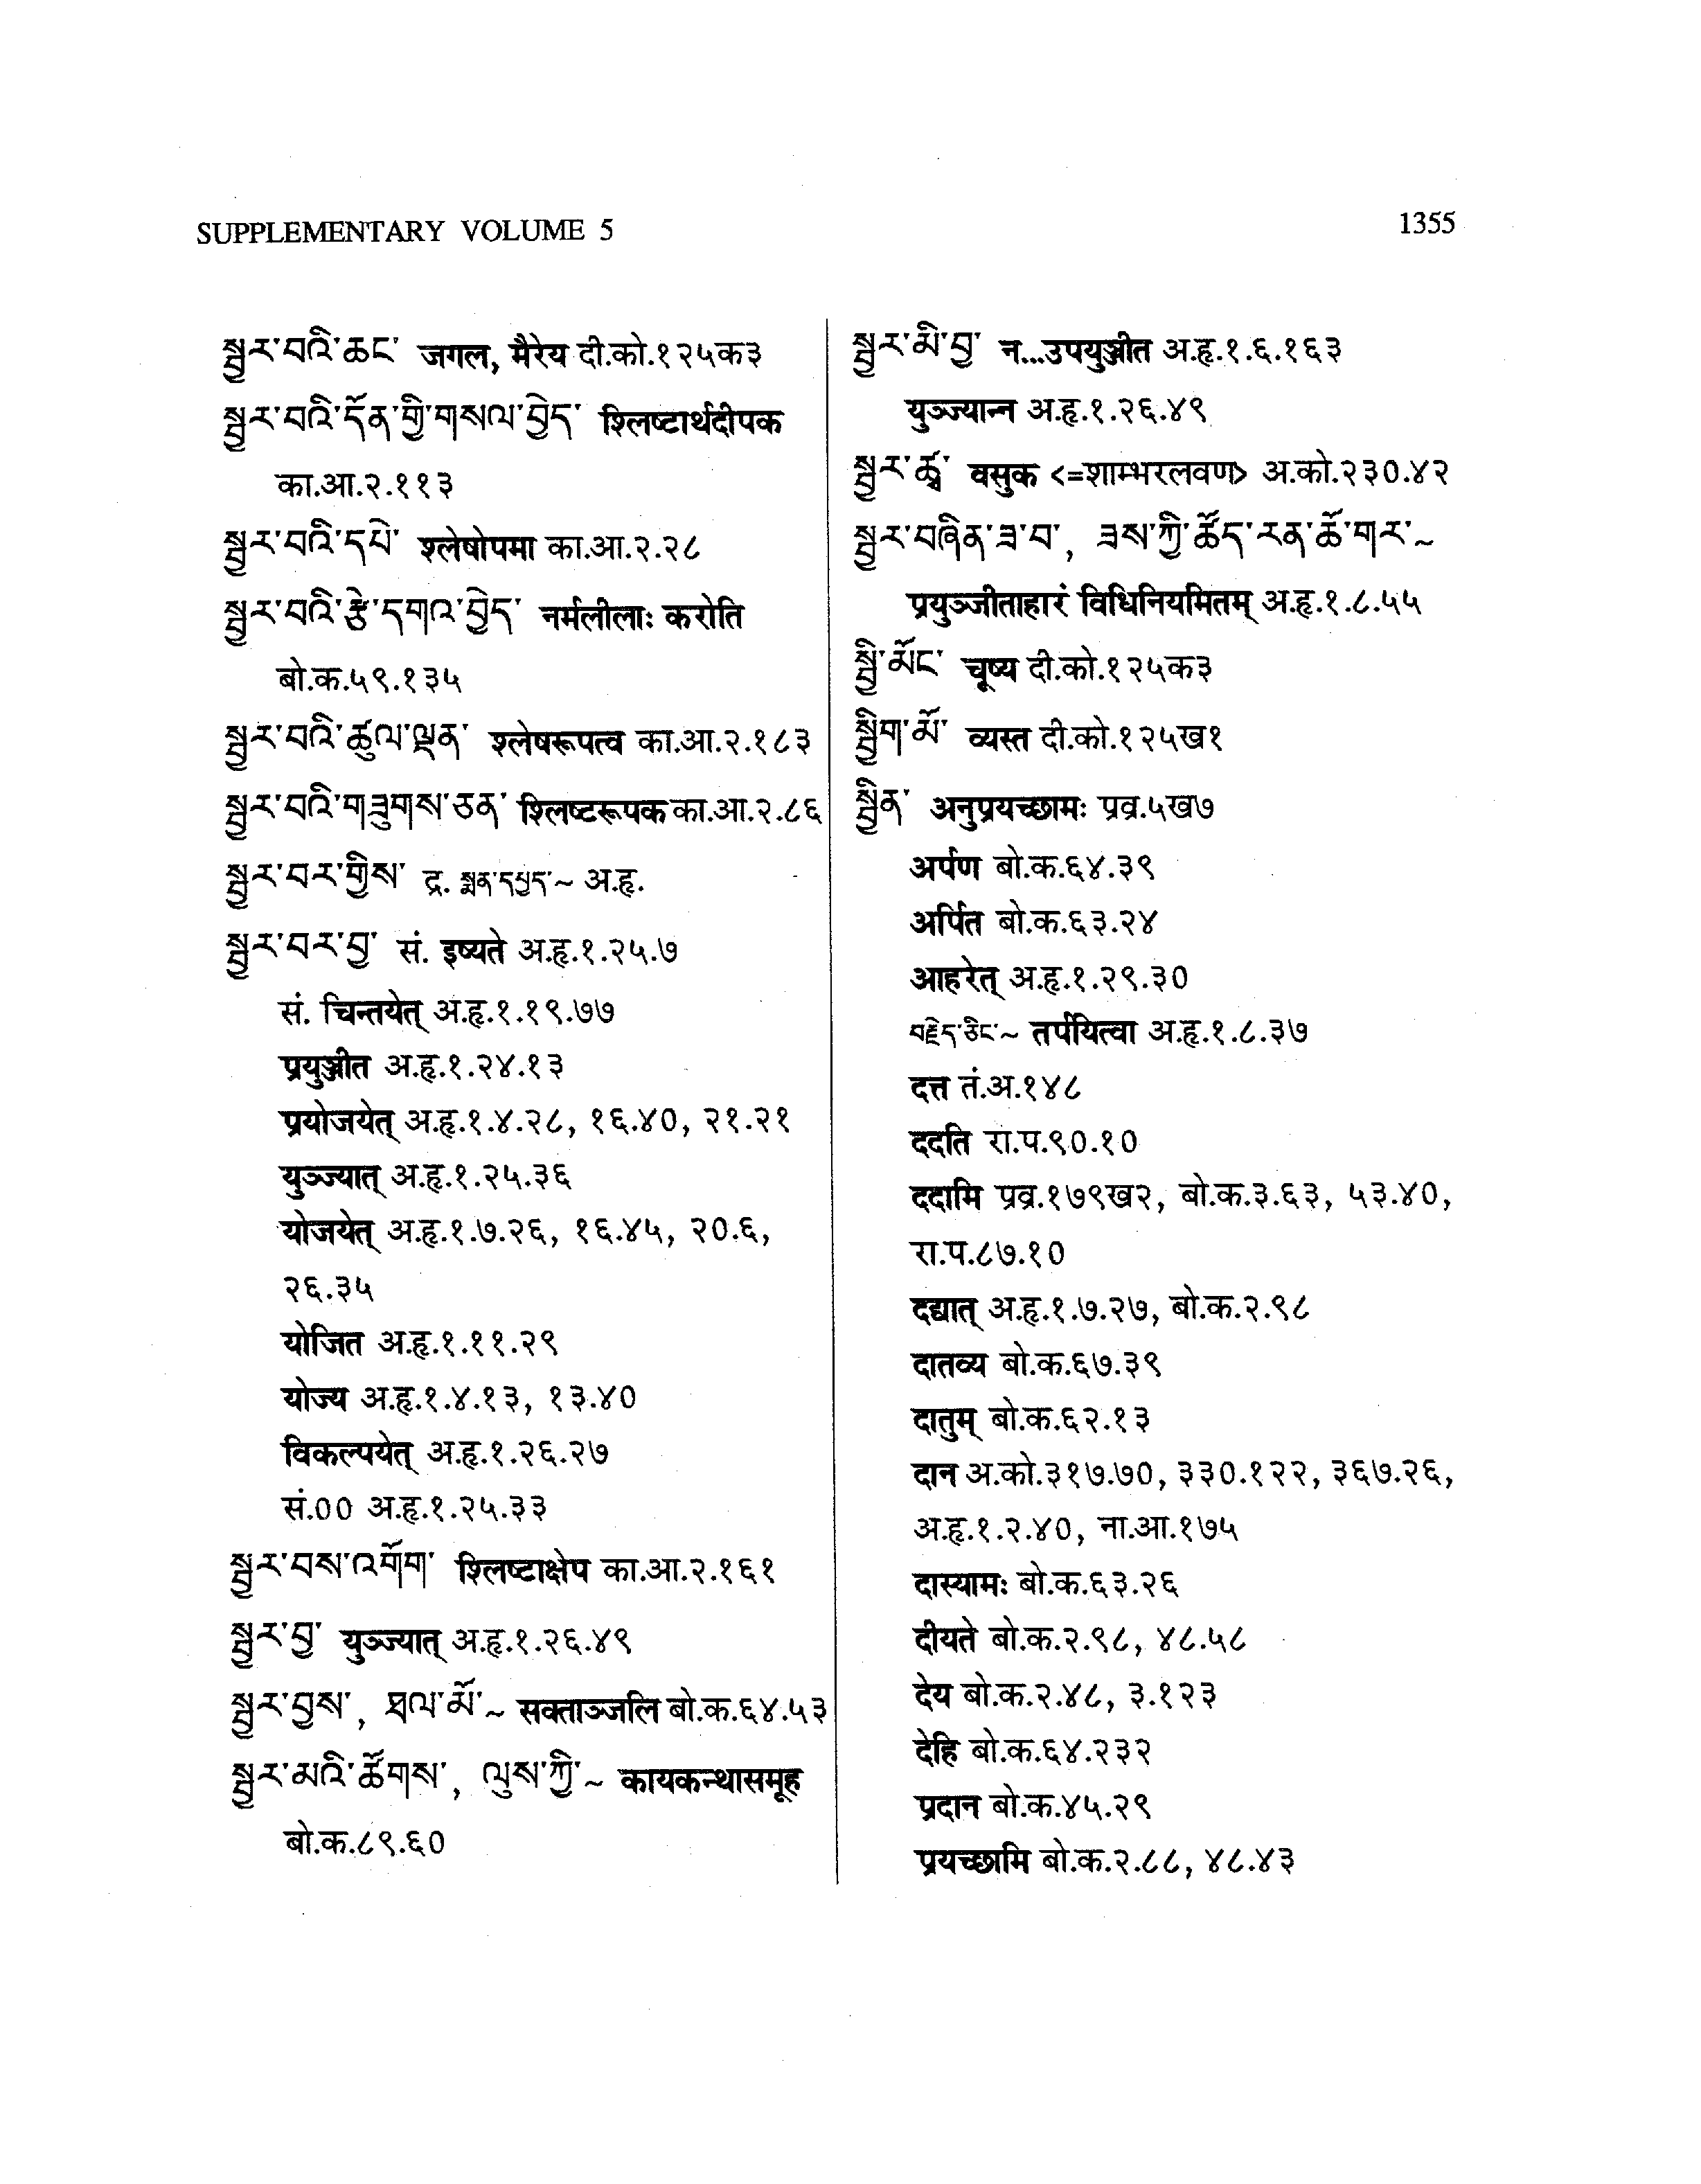 SUPPLEMENTARY VOLUME 5
1355
སྦྱར་བའི་ཆང་ जगल, मैरेय दी.को.१२५क३
སྦྱར་བའི་དོན་གྱི་གསལ་བྱེད་ श्लिष्टार्थदीपक
का.आ.२.११३
སྦྱར་བའི་དཔེ་ श्लेषोपमा का.आ.२.२८
སྦྱར་བའི་རྩེ་དགའ་བྱེད་ नर्मलीलाः करोति
बो.क.५९.१३५
སྦྱར་བའི་ཚུལ་ལྡན་ श्लेषरूपत्व का.आ.२.१८३
སྦྱར་བའི་གཟུགས་ཅན་ श्लिष्टरूपक का.आ.२.८६
སྦྱར་བར་གྱིས་ द्र. སྨན་དཔྱད་~ अ.हृ.
སྦྱར་བར་བྱ་ सं. इष्यते अ.हृ.१.२५.७
सं. चिन्तयेत् अ.हृ.१.१९.७७
प्रयुञ्जीत अ.हृ.१.२४.१३
प्रयोजयेत् अ.हृ.१.४.२८, १६.४०, २१.२१
युञ्ज्यात् अ.हृ.१.२५.३६
योजयेत् अ.हृ.१.७.२६, १६.४५, २०.६,
२६.३५
योजित अ.हृ.१.११.२९
योज्य अ.हृ.१.४.१३, १३.४०
विकल्पयेत् अ.हृ.१.२६.२७
सं.०० अ.हृ.१.२५.३३
སྦྱར་བས་འགོག་ श्लिष्टाक्षेप का.आ.२.१६१
སྦྱར་བྱ་ युञ्ज्यात् अ.हृ.१.२६.४९
སྦྱར་བྱས་, ཐལ་མོ་~ सक्ताञ्जलि बो.क.६४.५३
སྦྱར་མའི་ཚོགས་, ལུས་ཀྱི་~ कायकन्थासमूह
बो.क.८९.६०
སྦྱར་མི་བྱ་ न...उपयुञ्जीत अ.हृ.१.६.१६३
युञ्ज्यान्न अ.हृ.१.२६.४९
སྦྱར་ཚྭ་ वसुक <=शाम्भरलवण> अ.को.२३०.४२
སྦྱར་བཞིན་ཟ་བ་, ཟས་ཀྱི་ཚོད་རན་ཆོ་གར་~
प्रयुञ्जीताहारं विधिनियमितम् अ.हृ.१.८.५५
སྦྱི་མོང་ चूष्य दी.को.१२५क३
སྦྱིག་མོ་ व्यस्त दी.को.१२५ख१
སྦྱིན་ अनुप्रयच्छामः प्रव्र.५ख७
अर्पण बो.क.६४.३९
अर्पित बो.क.६३.२४
आहरेत् अ.हृ.१.२९.३०
བརྗེད་ཅིང་~ तर्पयित्वा अ.हृ.१.८.३७
दत्त तं.अ.१४८
ददति रा.प.९०.१०
ददामि प्रव्र.१७९ख२, बो.क.३.६३, ५३.४०,
रा.प.८७.१०
दद्यात् अ.हृ.१.७.२७, बो.क.२.९८
दातव्य बो.क.६७.३९
दातुम् बो.क.६२.१३
दान अ.को.३१७.७०, ३३०.१२२, ३६७.२६,
अ.हृ.१.२.४०, ना.आ.१७५
दास्यामः बो.क.६३.२६
दीयते बो.क.२.९८, ४८.५८
देय बो.क.२.४८, ३.१२३
देहि बो.क.६४.२३२
प्रदान बो.क.४५.२९
प्रयच्छामि बो.क.२.८८, ४८.४३